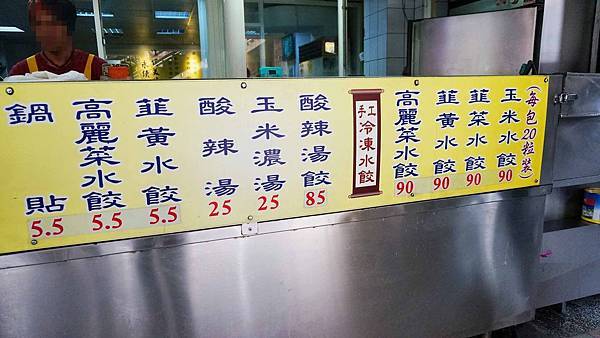 鍋貼
5.5
高麗菜水餃
5.5
韮黃水餃
5.5
酸辣湯
25
玉米濃湯
25
酸辣湯餃
85
手工
冷凍水餃
高麗菜水餃
90
韮黃水餃
90
韮菜水餃
90
玉米水餃
90
(每包20粒裝)